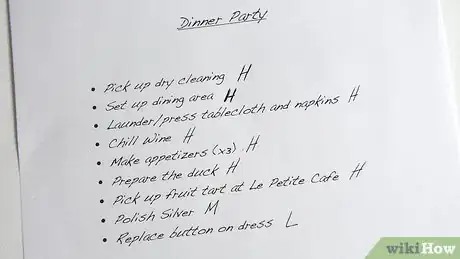 Dinner Party
• Pick up dry cleaning H
• Set up dining area H
• Launder/press tablecloth and napkins H
• Chill Wine H
• Make appetizers (x3) H
• Prepare the duck H
• Pick up fruit tart at Le Petite Cafe H
• Polish Silver M
• Replace button on dress L
wikiHow